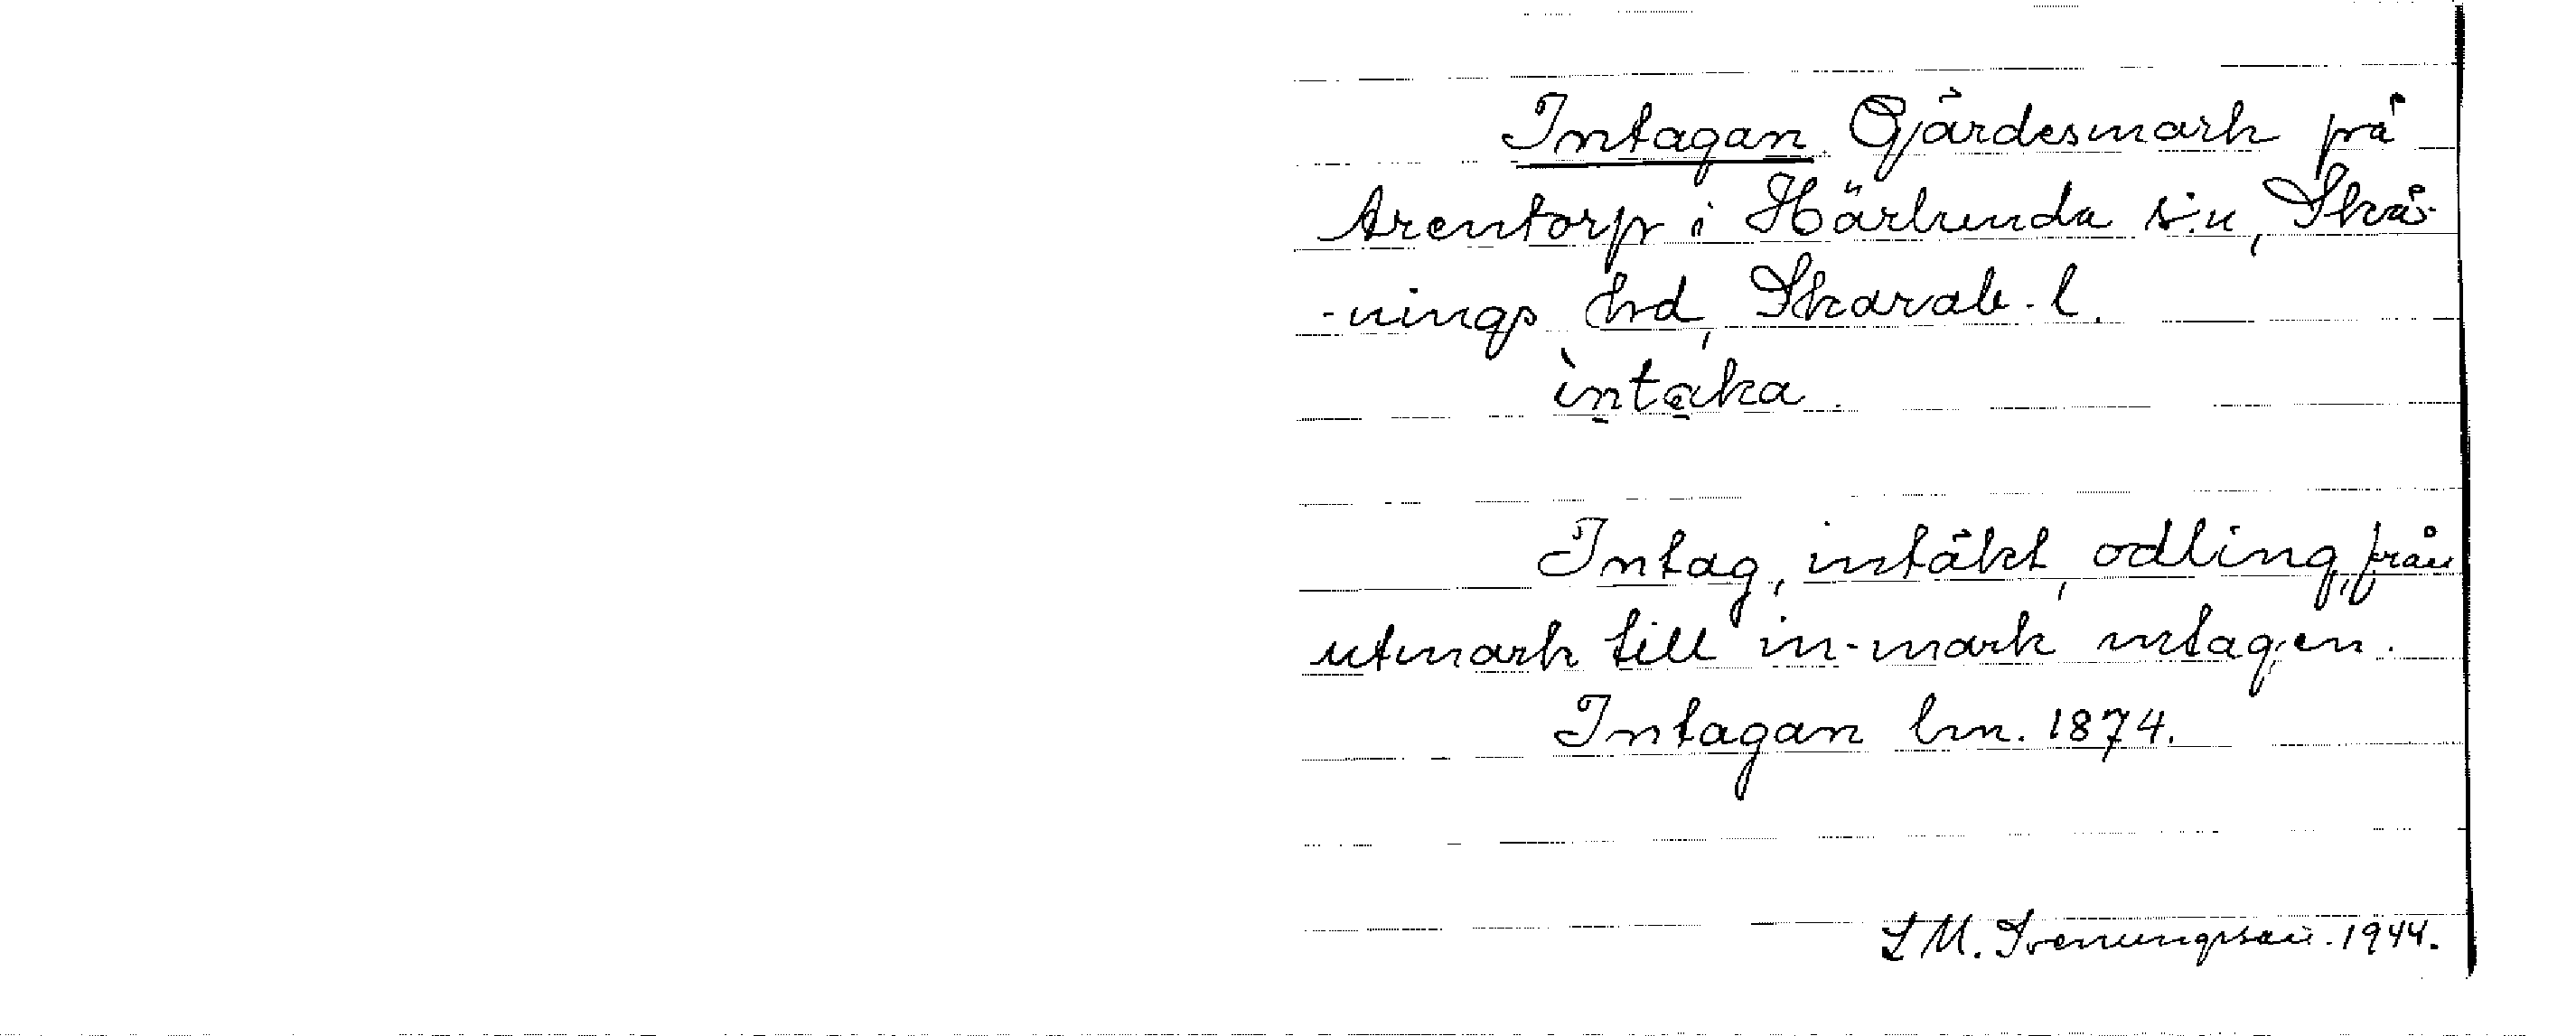 Intagan. Gjärdesmark på
Arentorp i Härlunda s:n, Skå-
-nings hd, Skarab. l.
ìntaka.
Intag, intäkt, odling, från
utmark till in-mark intagen.
Intagan lm. 1874.
S M. Svenungsson. 1944.